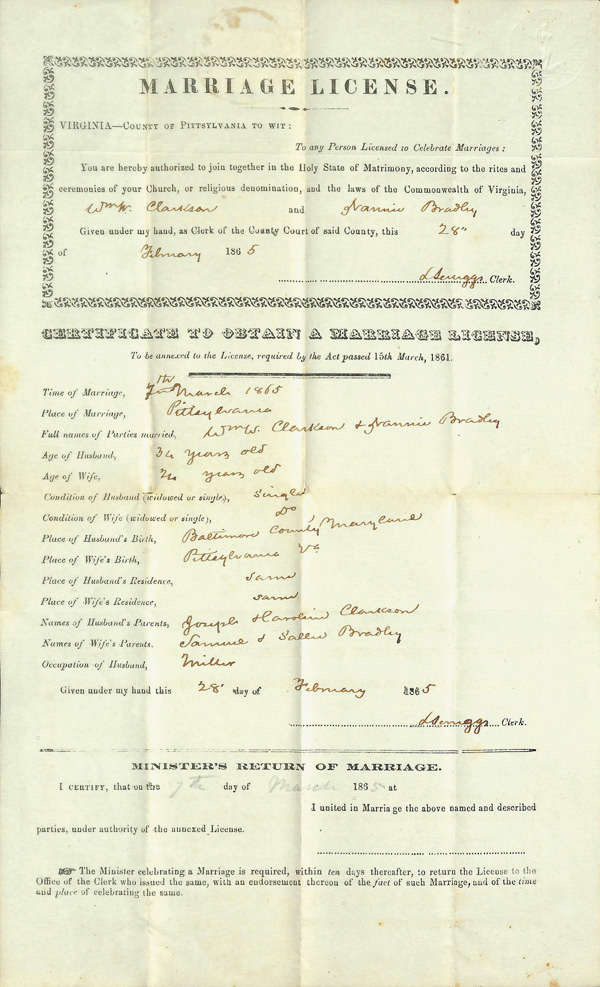 MARRIAGE LICENSE.
VIRGINIA—COUNTY OF PITTSYLVANIA TO WIT:
To any Person Licensed to Celebrate Marriages:
You are hereby authorized to join together in the Holy State of Matrimony, according to the rites and
ceremonies of your Church, or religious denomination, and the laws of the Commonwealth of Virginia,
Wm W. Clarkson and Nannie Bradley
Given under my hand, as Clerk of the County Court of said County, this 28" day
of February 1865
L Scruggs Clerk.
CERTIFICATE TO OBTAIN A MARRIAGE LICENSE,
To be annexed to the License, required by the Act passed 15th March, 1861.
Time of Marriage, 7th March 1865
Place of Marriage, Pittsylvania
Full names of Parties married, Wm W. Clarkson & Nannie Bradley
Age of Husband, 34 years old
Age of Wife, 24 years old
Condition of Husband (widowed or single), Single
Condition of Wife (widowed or single), Do
Place of Husband's Birth, Baltimore County Maryland
Place of Wife's Birth, Pittsylvania Va
Place of Husband's Residence, Same
Place of Wife's Residence, Same
Names of Husband's Parents, Joseph & Caroline Clarkson
Names of Wife's Parents. Samuel & Sallie Bradley
Occupation of Husband, Miller
Given under my hand this 28" day of February 1865
L Scruggs Clerk.
MINISTER'S RETURN OF MARRIAGE.
I CERTIFY, that on the 7th day of March 1865 at
I united in Marriage the above named and described
parties, under authority of the annexed License.
☞ The Minister celebrating a Marriage is required, within ten days thereafter, to return the License to the
Office of the Clerk who issued the same, with an endorsement thereon of the fact of such Marriage, and of the time
and place of celebrating the same.